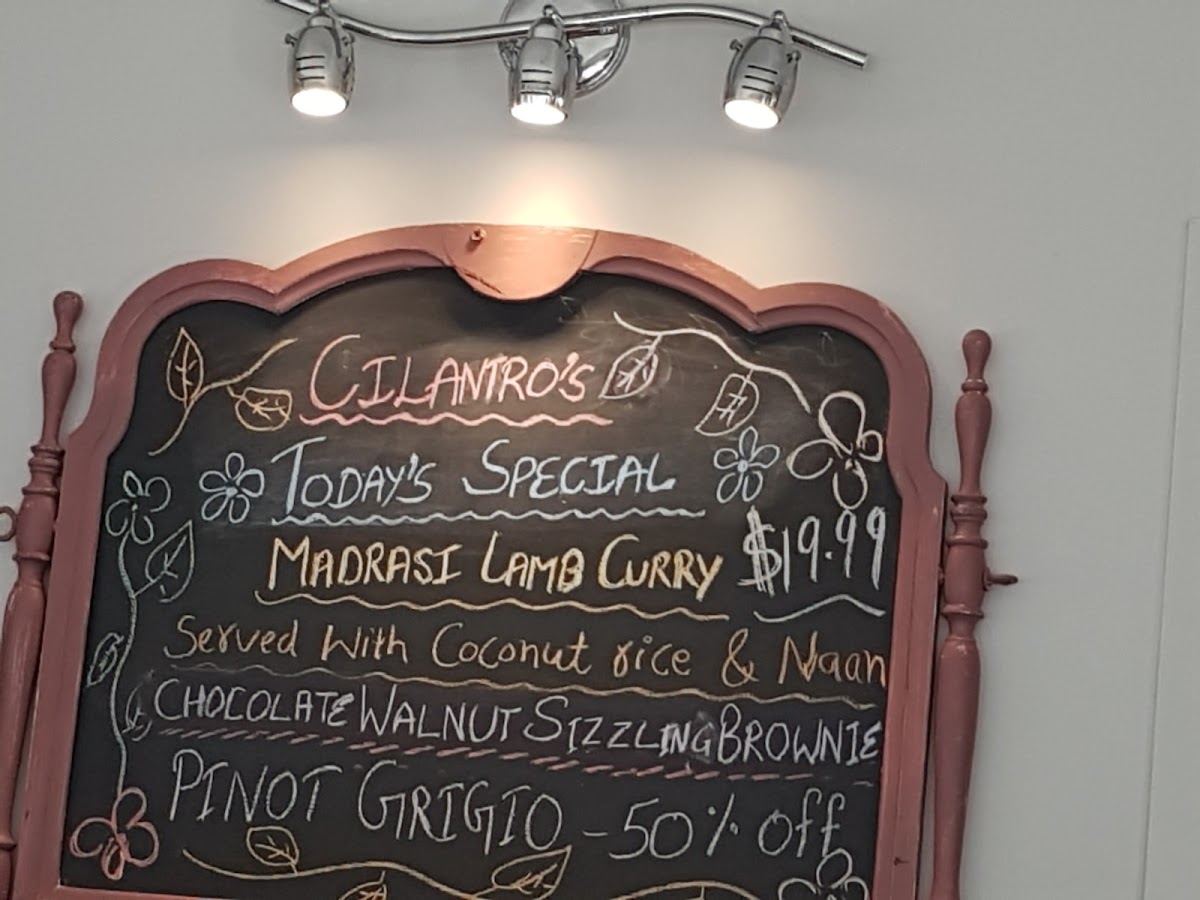 CILANTRO'S
TODAY'S SPECIAL
MADRASI LAMB CURRY $19.99
Served With Coconut rice & Naan
CHOCOLATE WALNUT SIZZLING BROWNIE
PINOT GRIGIO - 50% off